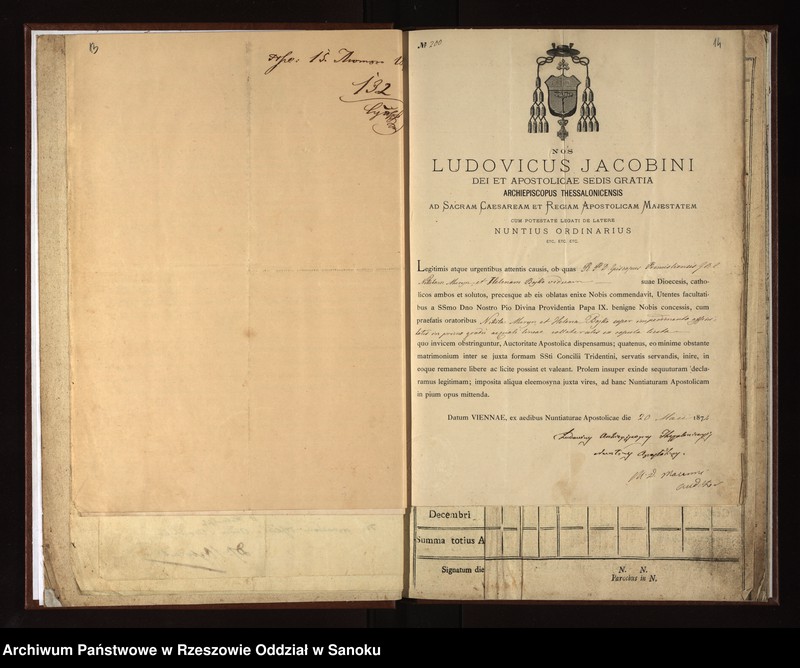 13
15.
132
№ 200
14
NOS
LUDOVICUS JACOBINI
DEI ET APOSTOLICAE SEDIS GRATIA
ARCHIEPISCOPUS THESSALONICENSIS
AD SACRAM CAESAREAM ET REGIAM APOSTOLICAM MAJESTATEM
CUM POTESTATE LEGATI DE LATERE
NUNTIUS ORDINARIUS
ETC. ETC. ETC.
Legitimis atque urgentibus attentis causis, ob quas R. P. D. Episcopus
et Helenam viduam suae Dioecesis, catho-
licos ambos et solutos, precesque ab eis oblatas enixe Nobis commendavit, Utentes facultati-
bus a SSmo Dno Nostro Pio Divina Providentia Papa IX. benigne Nobis concessis, cum
praefatis oratoribus et Helena super impedimento affini-
tatis in primo gradu aequali lineae collateralis ex copula licita
quo invicem obstringuntur, Auctoritate Apostolica dispensamus; quatenus, eo minime obstante
matrimonium inter se juxta formam SSti Concilii Tridentini, servatis servandis, inire, in
eoque remanere libere ac licite possint et valeant. Prolem insuper exinde sequuturam decla-
ramus legitimam; imposita aliqua eleemosyna juxta vires, ad hanc Nuntiaturam Apostolicam
in pium opus mittenda.
Datum VIENNAE, ex aedibus Nuntiaturae Apostolicae die 20 187
Ludovicus Archiepiscopus Thessalonicen
Nuntius Apostolicus.
Decembri
Summa totius A
Signatum die
N. N.
Parochus in N.
Archiwum Państwowe w Rzeszowie Oddział w Sanoku